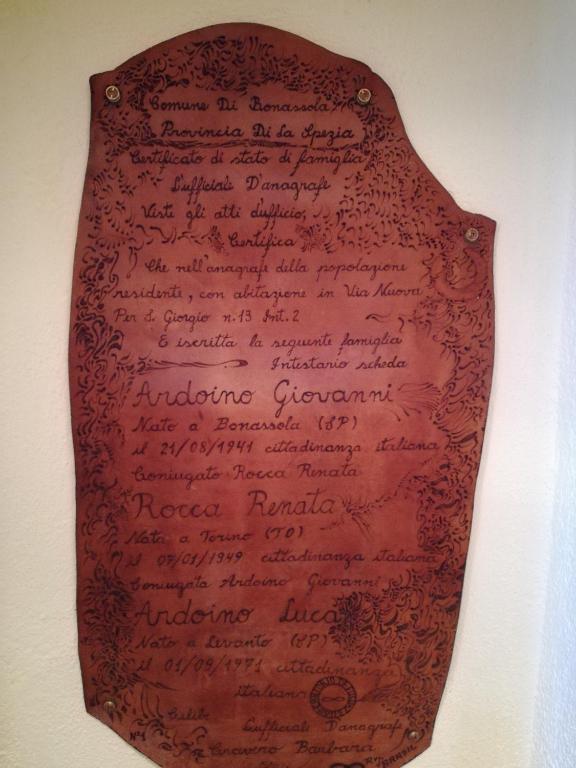 Comune Di Bonassola
Provincia Di La Spezia
Certificato di stato di famiglia
L'ufficiale D'anagrafe
Visti gli atti d'ufficio;
Certifica
Che nell'anagrafe della popolazione
residente, con abitazione in Via Nuova
Per S. Giorgio n.13 Int.2
E iscritta la seguente famiglia
Intestario scheda
Ardoino Giovanni
Nato a Bonassola (SP)
il 21/08/1941 cittadinanza italiana
Coniugato Rocca Renata
Rocca Renata
Nata a Torino (TO)
il 07/01/1949 cittadinanza italiana
Coniugata Ardoino Giovanni
Ardoino Luca
Nato a Levanto (SP)
il 01/09/1971 cittadinanza
italiana
Celibe
L'ufficiale D'anagrafe
N°1
Barbara
BRASIL